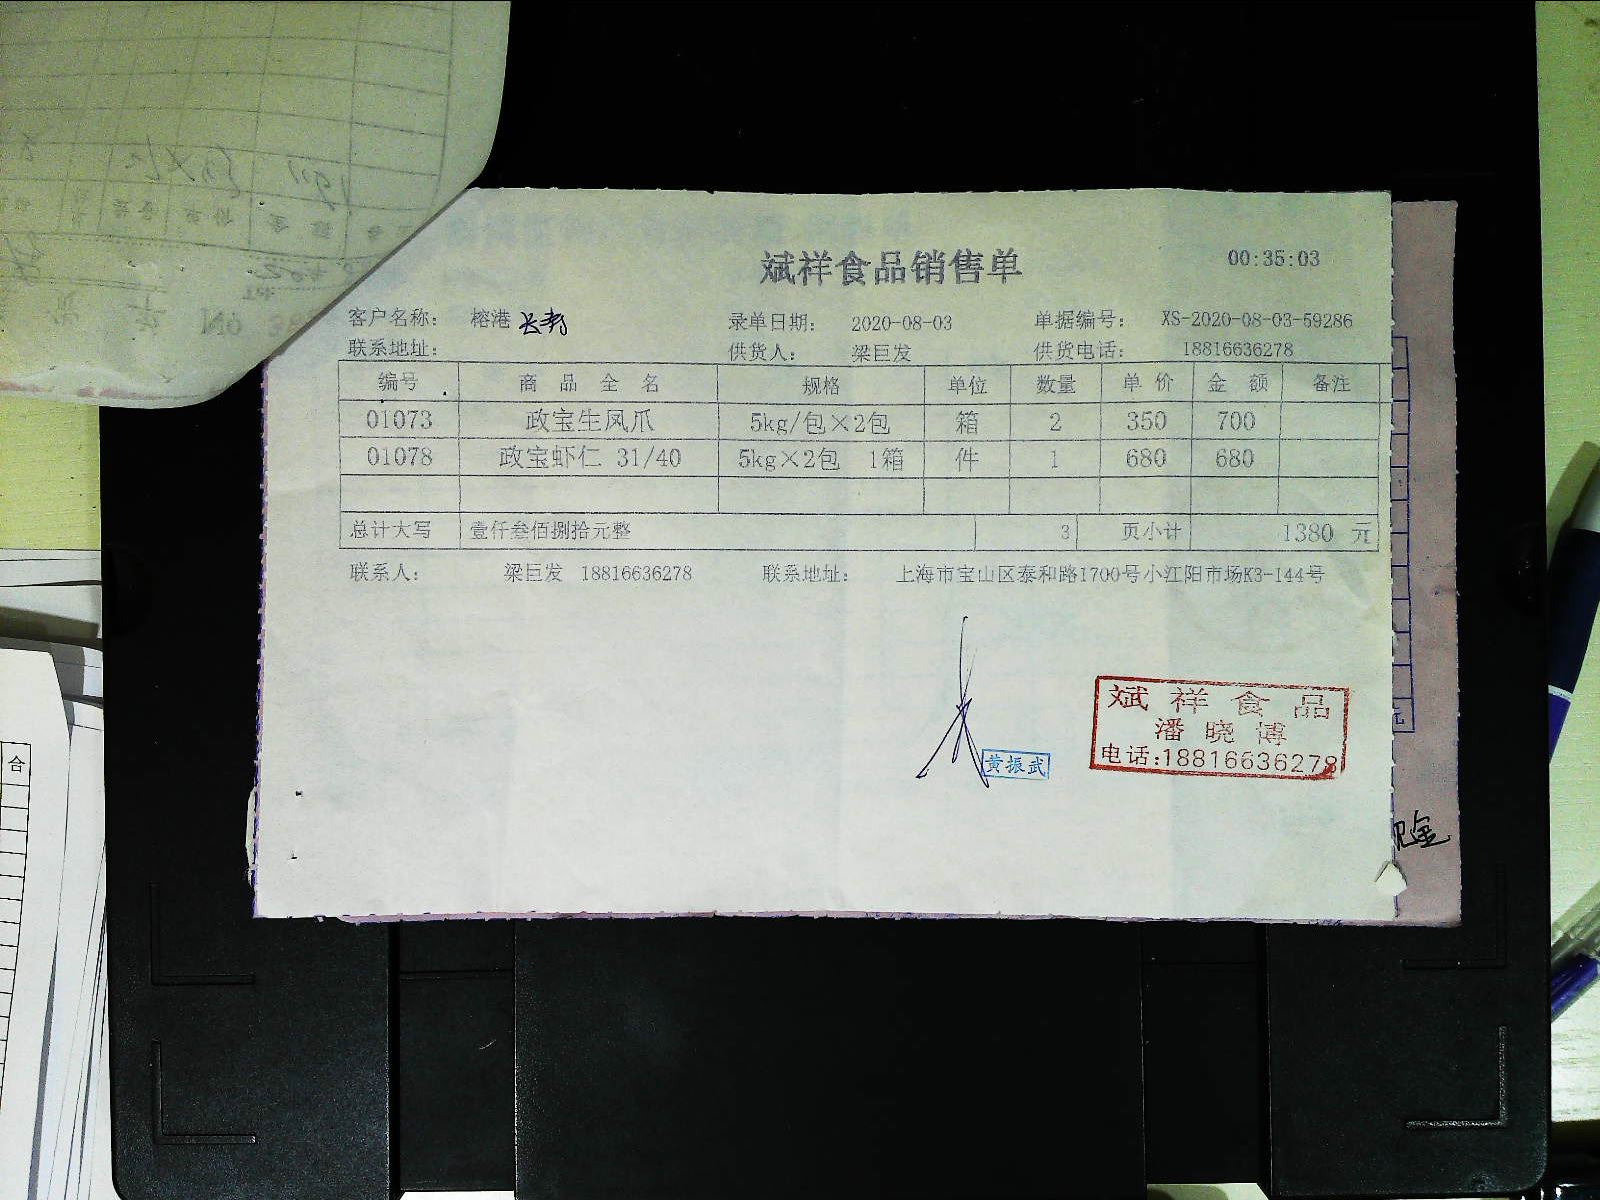 斌祥食品销售单
00:35:03
客户名称： 榕港 长寿 录单日期： 2020-08-03 单据编号： XS-2020-08-03-59286
联系地址： 供货人： 梁巨发 供货电话： 18816636278
编号 商品全名 规格 单位 数量 单价 金额 备注
01073 政宝生凤爪 5kg/包×2包 箱 2 350 700
01078 政宝虾仁 31/40 5kg×2包 1箱 件 1 680 680
总计大写 壹仟叁佰捌拾元整 3 页小计 1380 元
联系人： 梁巨发 18816636278 联系地址： 上海市宝山区泰和路1700号小江阳市场K3-144号
斌祥食品
潘晓博
电话:18816636278
黄振武
合
元